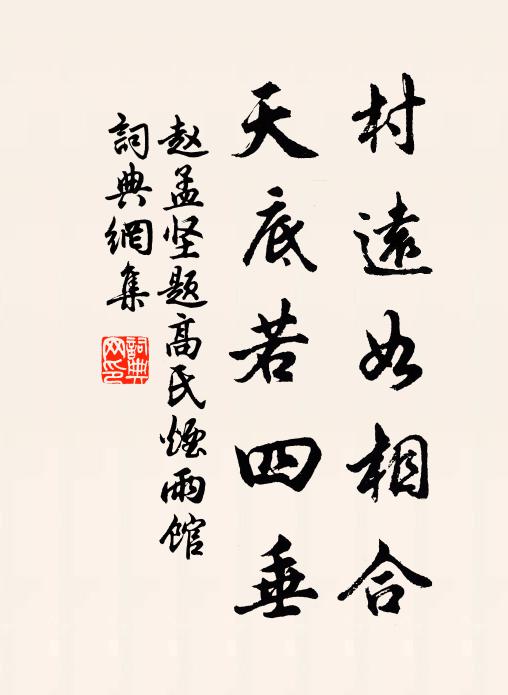 村遠如相合
天底若四垂
赵孟坚题高氏烟雨馆
詞典網集
詞典網印